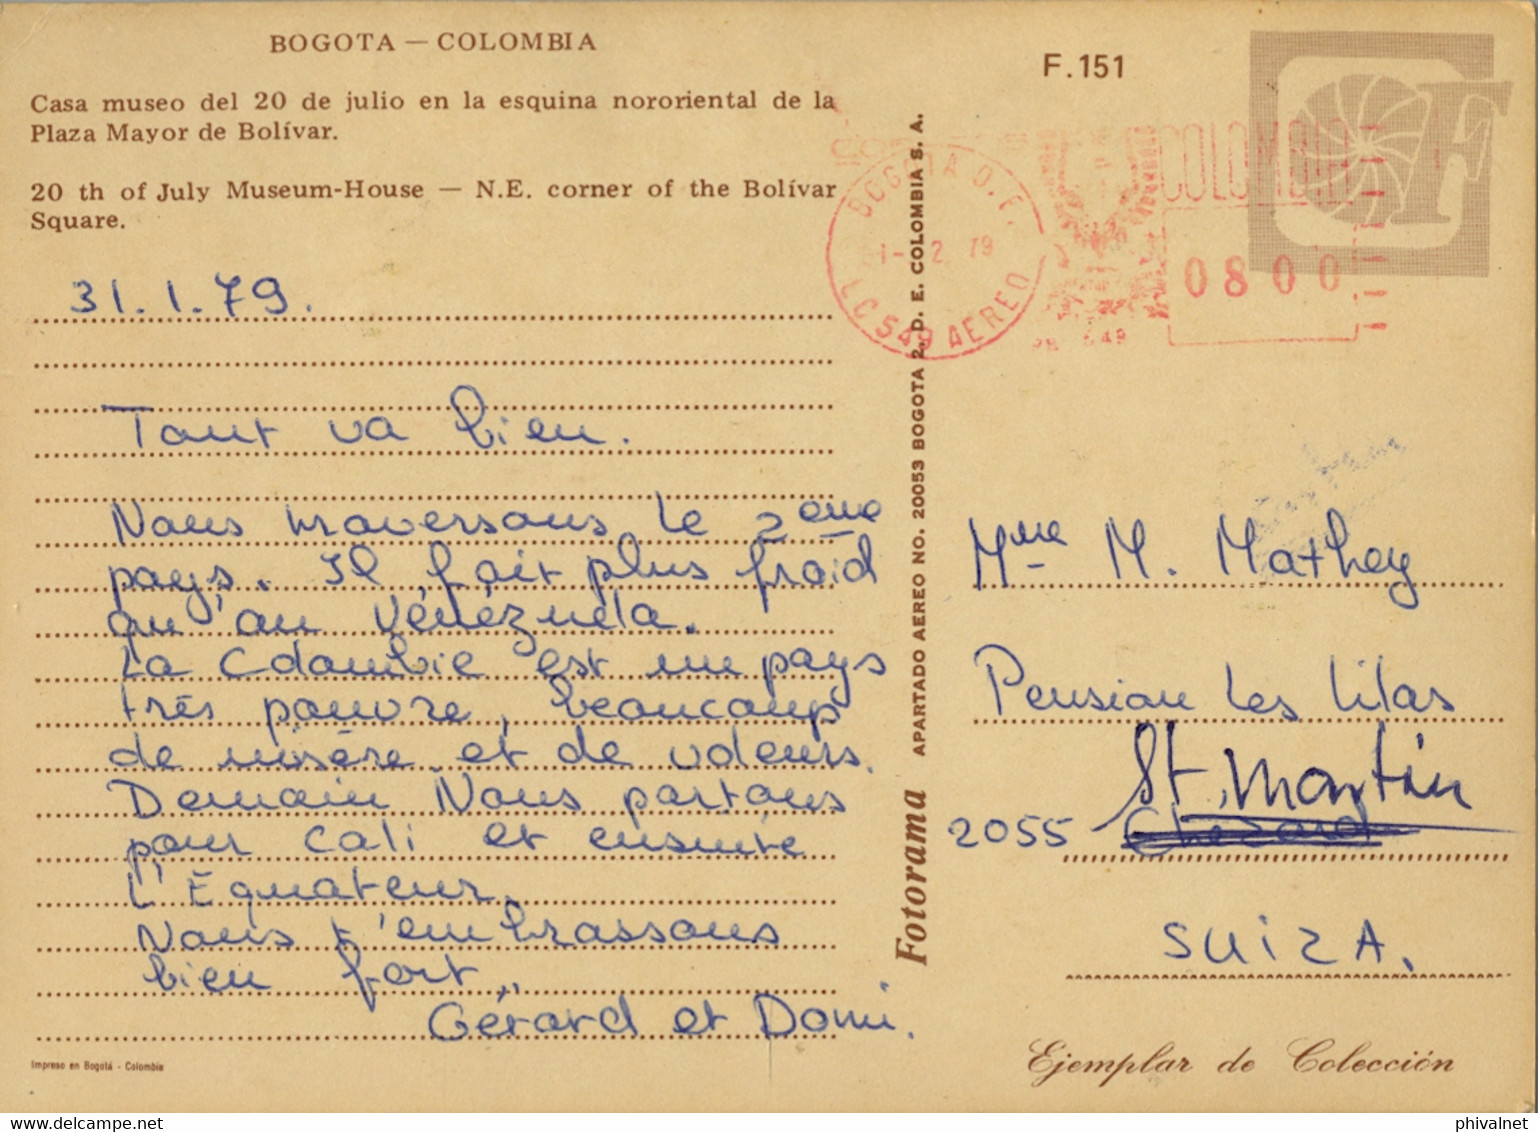 BOGOTA — COLOMBIA
Casa museo del 20 de julio en la esquina nororiental de la
Plaza Mayor de Bolívar.
20 th of July Museum-House — N.E. corner of the Bolívar
Square.
31.1.79.
Tout va bien.
Nous traversons le 2ème
pays. Il fait plus froid
qu'au Vénézuela.
La Colombie est un pays
très pauvre, beaucoup
de misère et de voleurs.
Demain Nous partons
pour Cali et ensuite
l'Équateur.
Nous t'embrassons
bien fort,
Gérard et Domi.
Impreso en Bogotá - Colombia
Fotorama APARTADO AEREO NO. 20053 BOGOTA 2, D. E. COLOMBIA S. A.
F.151
F
BOGOTA D.E.
1-2 79
LC 549 AEREO
COLOMBIA
0800
549
Mme M. Mathey
Pension les lilas
St. Martin
2055 Chézard
SUIZA.
Ejemplar de Colección
phivalnet